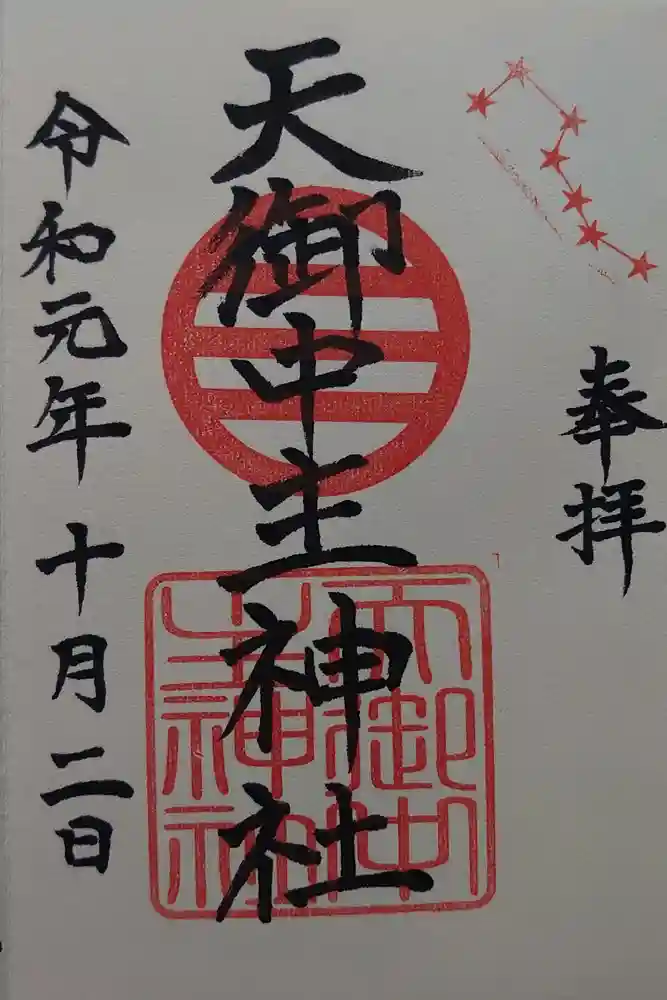 奉拝
天御中主神社
天御中
主神社
令和元年十月二日